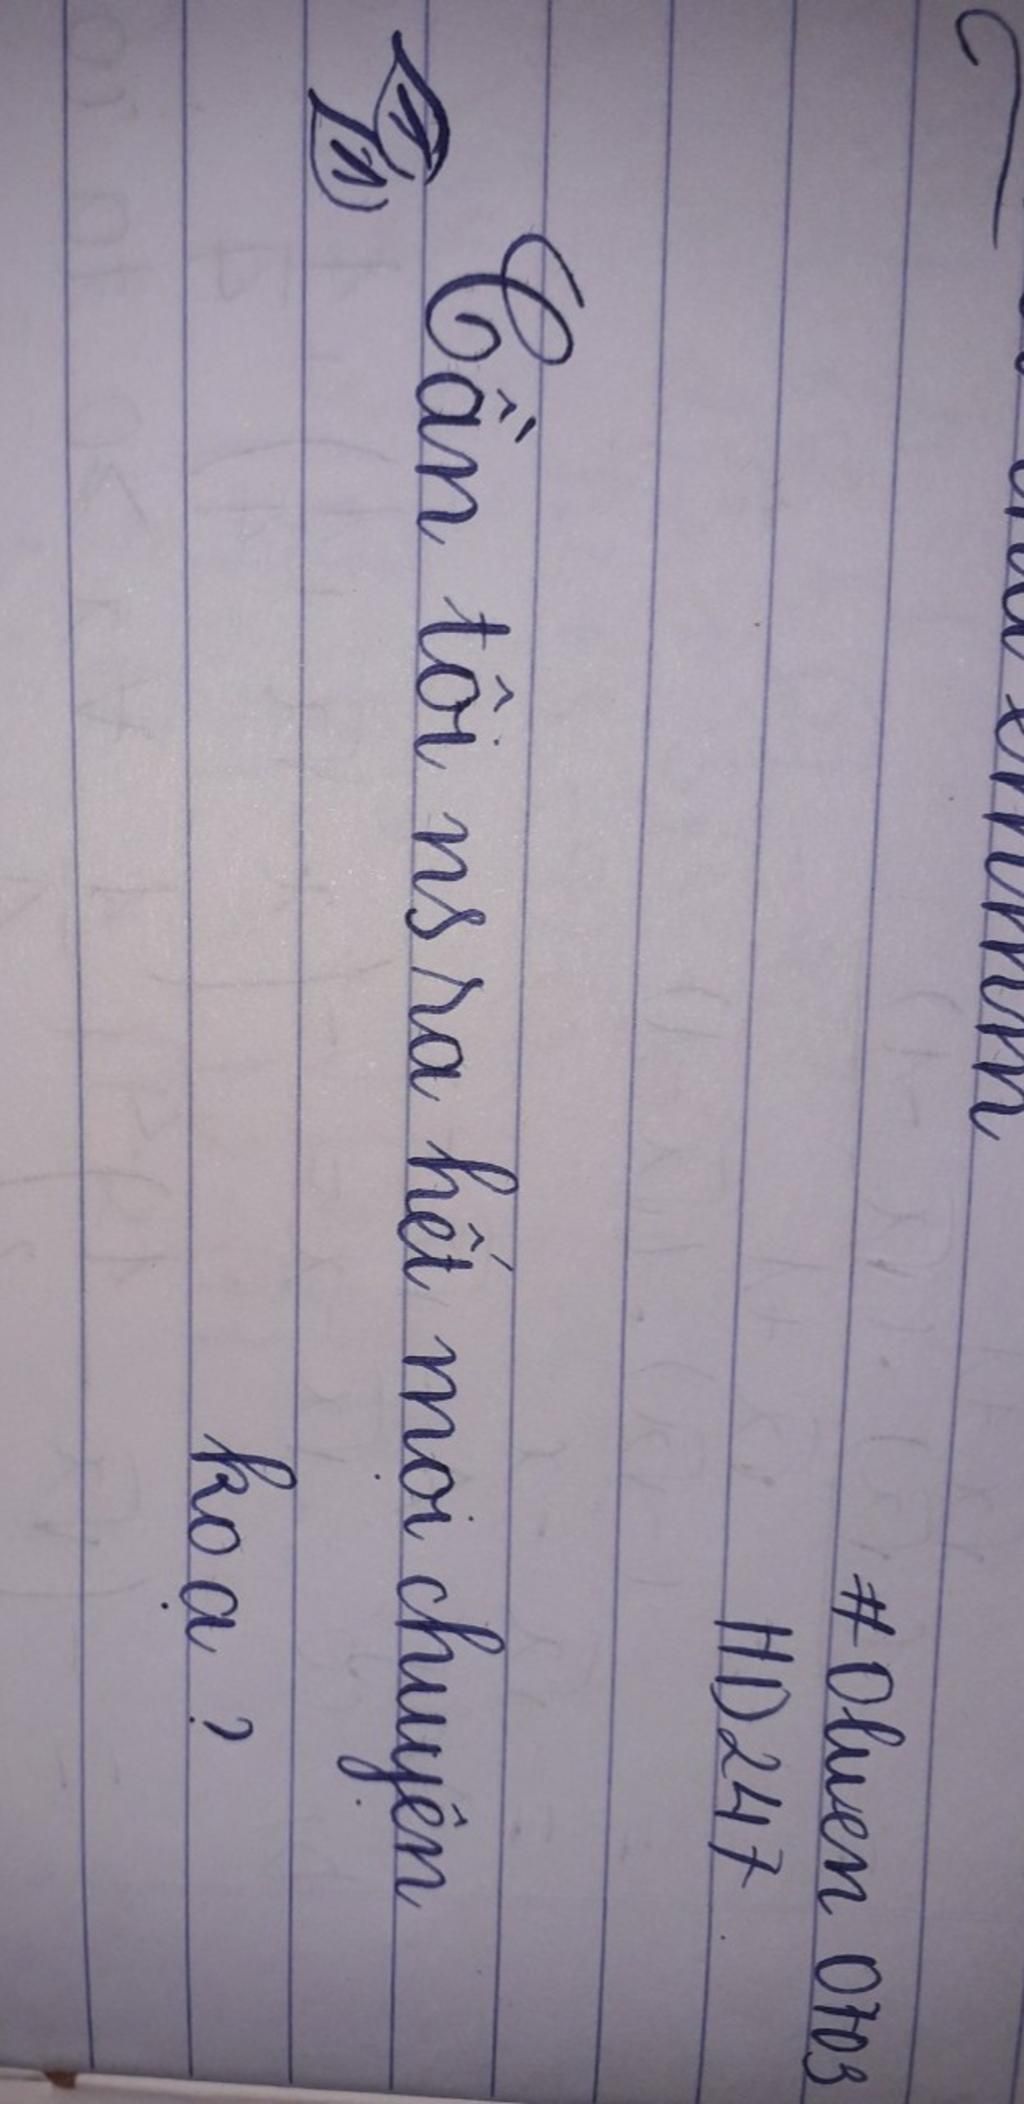 #Olwen 0703
HD247
Cần tôi ns ra hết mọi chuyện
ko ạ?